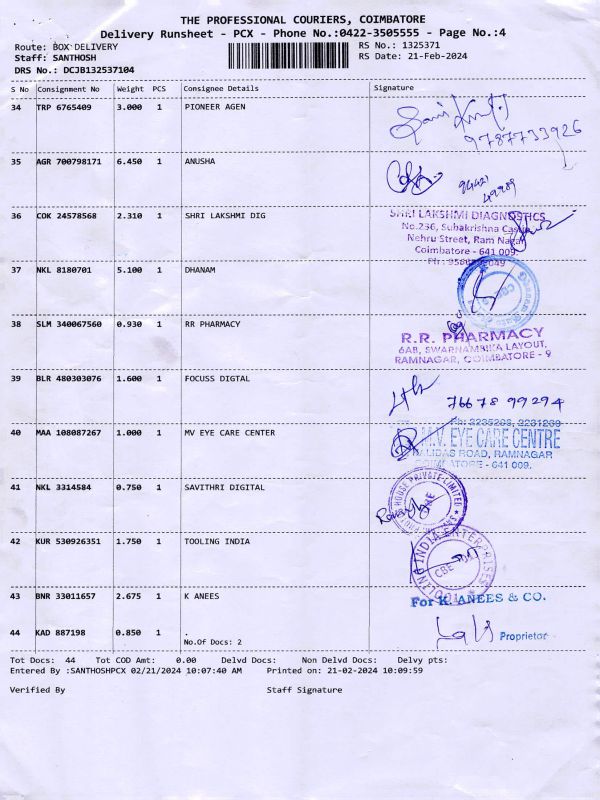 THE PROFESSIONAL COURIERS, COIMBATORE
Delivery Runsheet - PCX - Phone No.:0422-3505555 - Page No.:4
Route: BOX DELIVERY RS No.: 1325371
Staff: SANTHOSH RS Date: 21-Feb-2024
DRS No.: DCJB132537104
S No Consignment No Weight PCS Consignee Details Signature
34 TRP 6765409 3.000 1 PIONEER AGEN
9787733926
35 AGR 700798171 6.450 1 ANUSHA
36 COK 24578568 2.310 1 SHRI LAKSHMI DIG
SHRI LAKSHMI DIAGNOSTICS
No.236, Subakrishna
Nehru Street, Ram Nagar
Coimbatore - 641 009.
37 NKL 8180701 5.100 1 DHANAM
38 SLM 340067560 0.930 1 RR PHARMACY
R.R. PHARMACY
6AB, SWARNAMBIKA LAYOUT,
RAMNAGAR, COIMBATORE - 9
39 BLR 480303076 1.600 1 FOCUSS DIGTAL
76678 99294
40 MAA 108087267 1.000 1 MV EYE CARE CENTER
Ph: 2235203, 2231209
M.V. EYE CARE CENTRE
ROAD, RAMNAGAR
- 641 009.
41 NKL 3314584 0.750 1 SAVITHRI DIGITAL
HOUSE PRIVATE LIMITED
42 KUR 530926351 1.750 1 TOOLING INDIA
TOOLING INDIA ENTERPRISES
CBE
43 BNR 33011657 2.675 1 K ANEES
For K. ANEES & CO.
44 KAD 887198 0.850 1 .
Proprietor
No.Of Docs: 2
Tot Docs: 44 Tot COD Amt: 0.00 Delvd Docs: Non Delvd Docs: Delvy pts:
Entered By :SANTHOSHPCX 02/21/2024 10:07:40 AM Printed on: 21-02-2024 10:09:59
Verified By Staff Signature